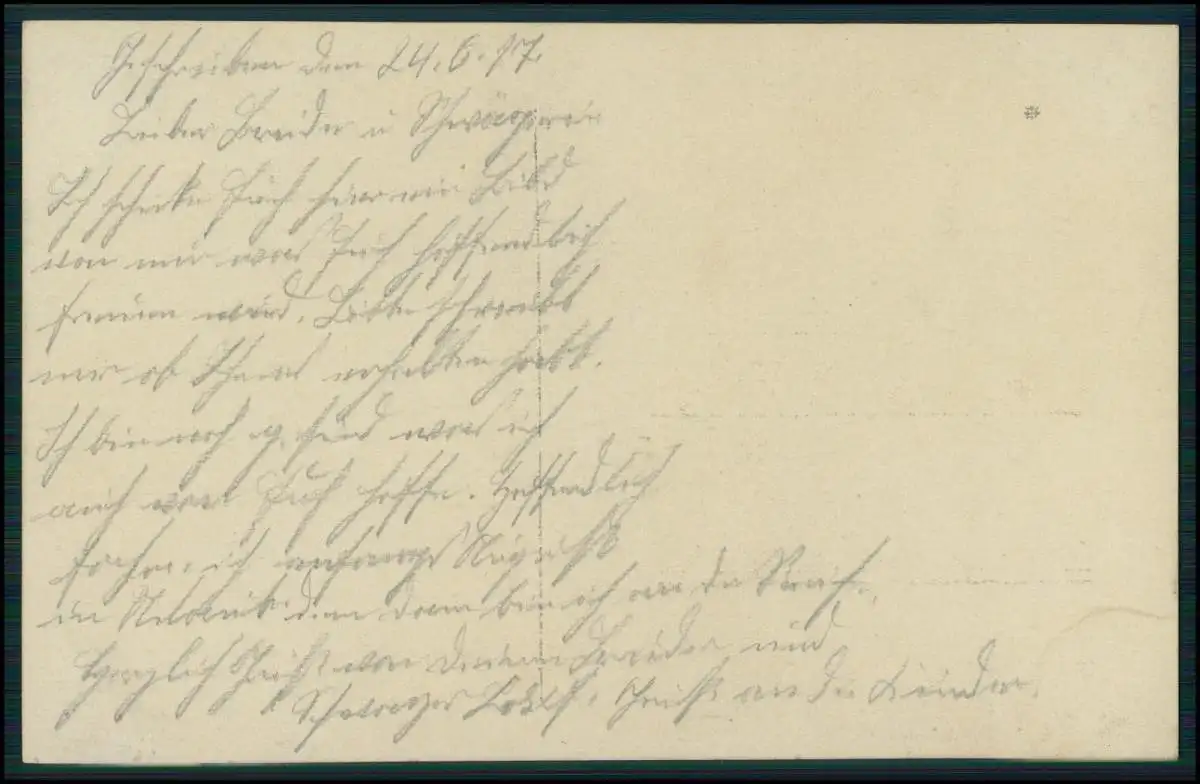 Geschrieben den 24.6.17.
Lieber Bruder u Schwägerin
Ich schicke Euch hier ein Bild
von mir was Euch hoffendlich
freuen wird. Bitte schreibt
mir ob Ihr es erhalten habt.
Ich bin noch gesund was ich
auch von Euch hoffe. Hoffendlich
fahre ich anfangs August
in Urlaub den dann bin ich an der Reih.
Herzlich Grüße von Deinem Bruder und
Schwager Grüße an die Kinder.